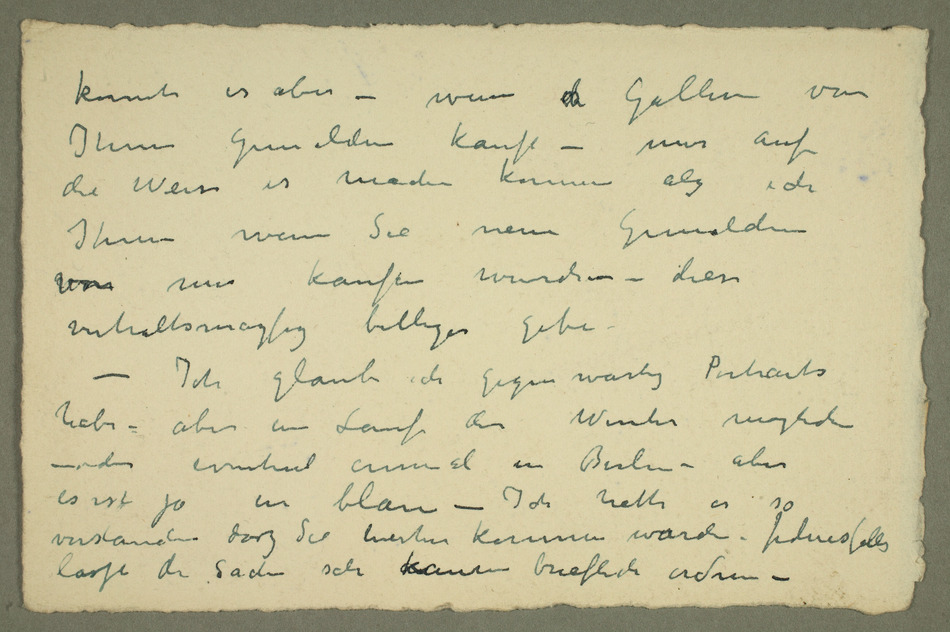 konnte es aber – wenn die Gallerie von
Ihnen Gemälden kauft – nur auf
die Weise es machen können als ich
Ihnen wenn Sie neue Gemälden
von mir kaufen wurden – diese
verhaltsmassig billiger gebe.
– Ich glaube ich gegenwartig Portraits
habe – aber im Lauf der Winter
eventuel einmal in Berlin – aber
es ist ja im blauen – Ich hatte es so
verstanden dass Sie hierher kommen wurde. Jedenfalls
lasst die Sache sich kaum brieflich ordnen –